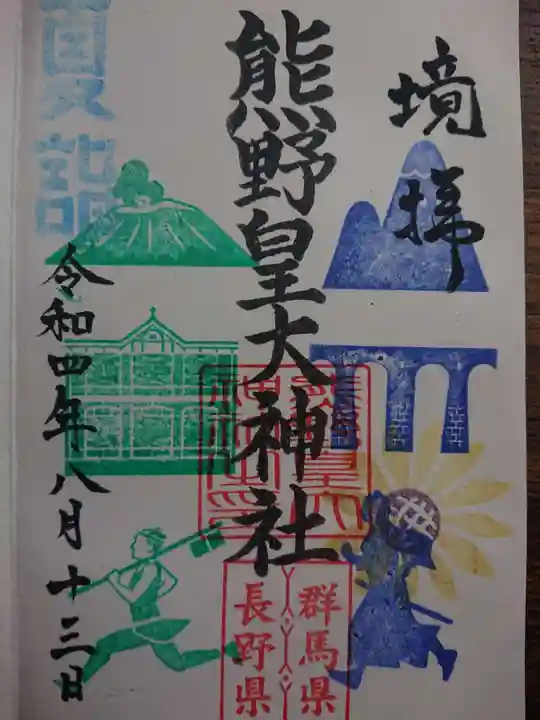 境拝
熊野皇大神社
群馬県
長野県
夏詣
令和四年、八月十三日